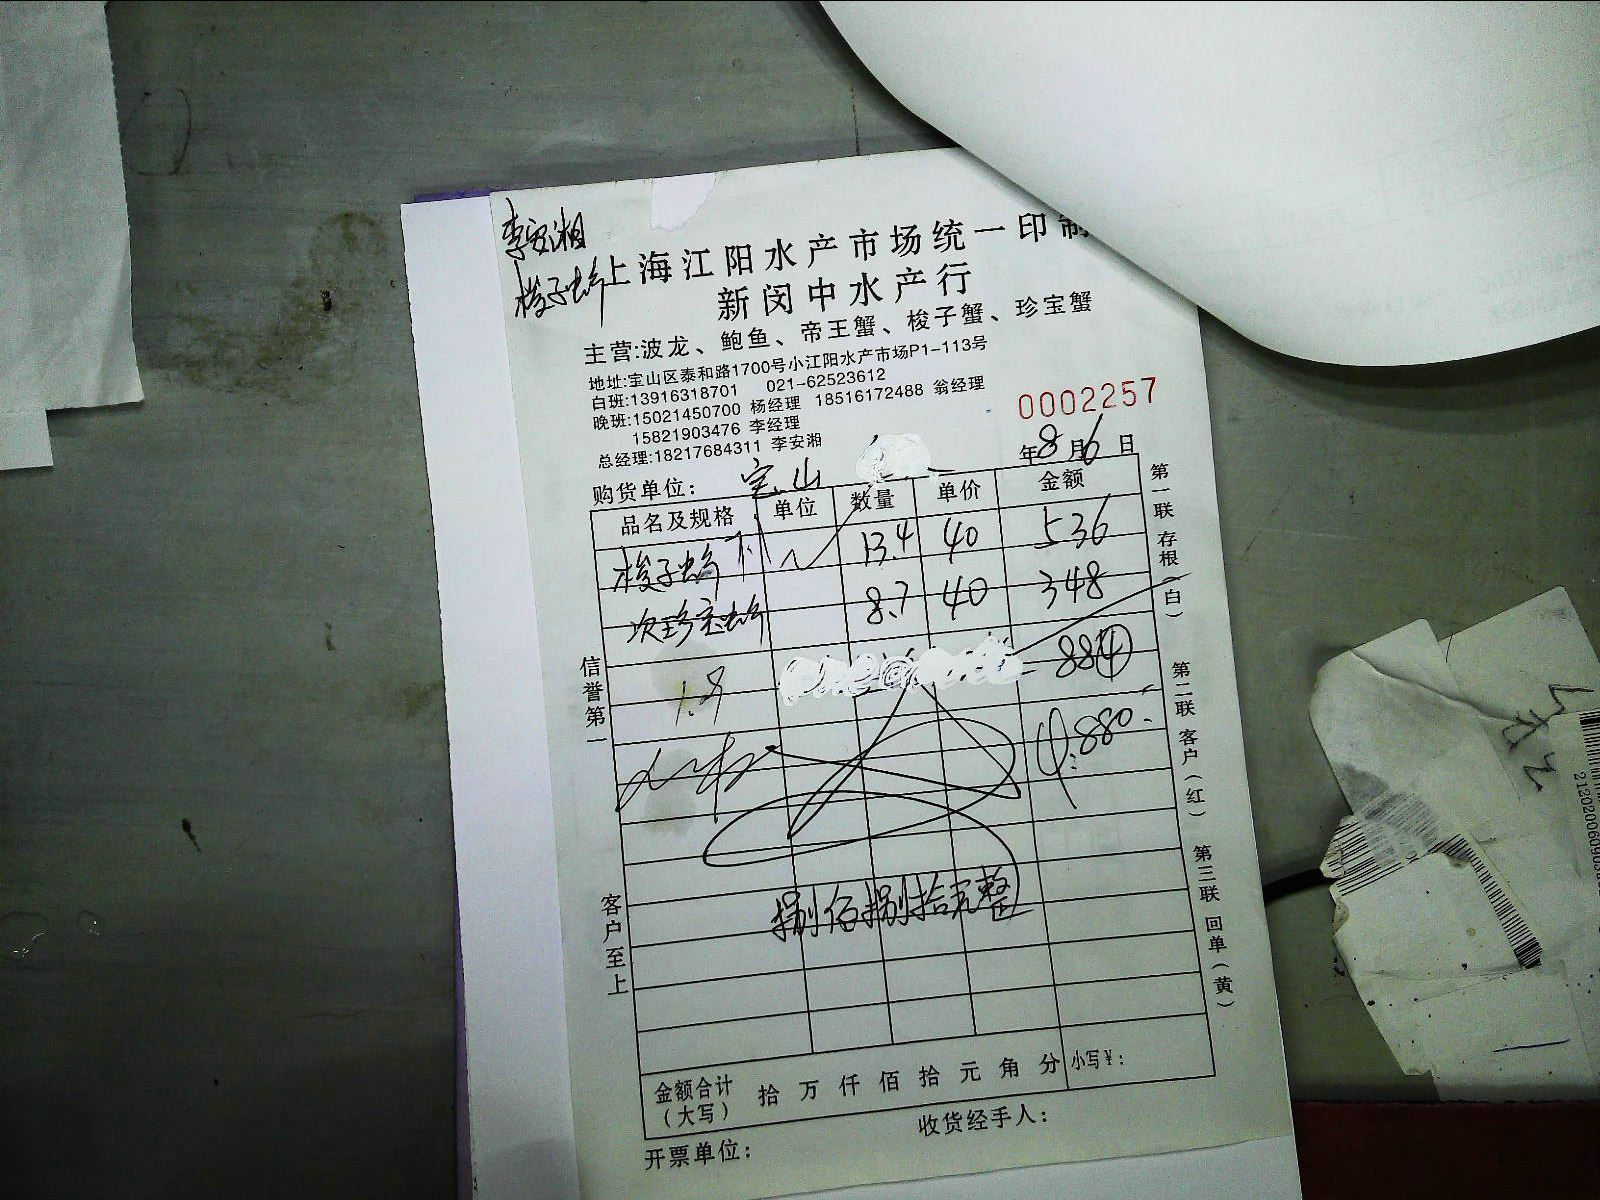 李安湘
梭子蟹
上海江阳水产市场统一印制
新闵中水产行
主营:波龙、鲍鱼、帝王蟹、梭子蟹、珍宝蟹
地址:宝山区泰和路1700号小江阳水产市场P1-113号
白班:13916318701 021-62523612
晚班:15021450700 杨经理 18516172488 翁经理
15821903476 李经理
总经理:18217684311 李安湘
0002257
年8月6日
购货单位: 宝山
品名及规格 单位 数量 单价 金额
梭子蟹 13.4 40 536
次珍宝蟹 8.7 40 348
1.8 884
880.
捌佰捌拾元整
金额合计(大写) 拾 万 仟 佰 拾 元 角 分 小写¥:
开票单位: 收货经手人:
信誉第一
客户至上
第一联 存根(白)
第二联 客户(红)
第三联 回单(黄)